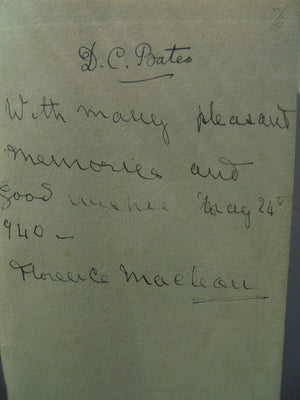 D. C. Bates
With many pleasant
memories and
good wishes May 24th
940 –
Florence Maclean